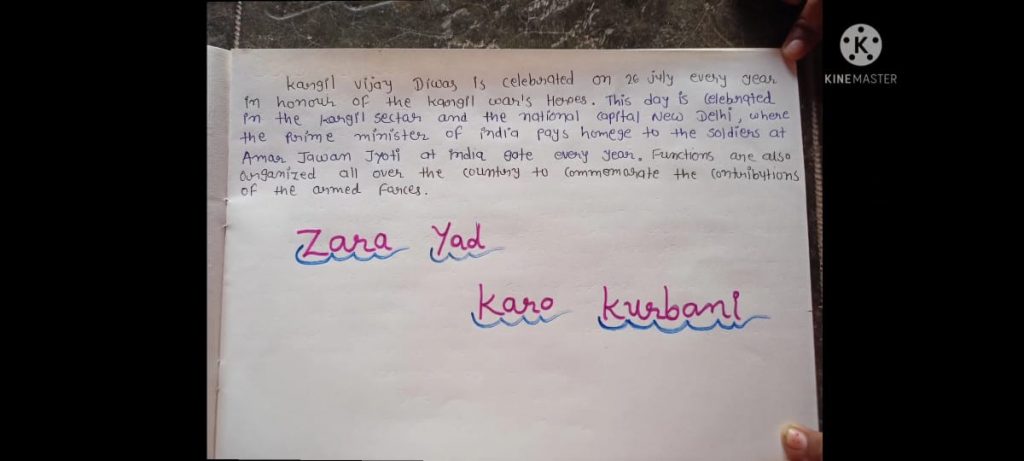 Kargil Vijay Diwas is celebrated on 26 july every year
in honour of the kargil war's Heroes. This day is celebrated
in the kargil sector and the national capital New Delhi, where
the prime minister of india pays homege to the soldiers at
Amar Jawan Jyoti at india gate every year. Functions are also
organized all over the country to commemorate the contributions
of the armed Forces.
Zara Yad
Karo Kurbani
KINEMASTER